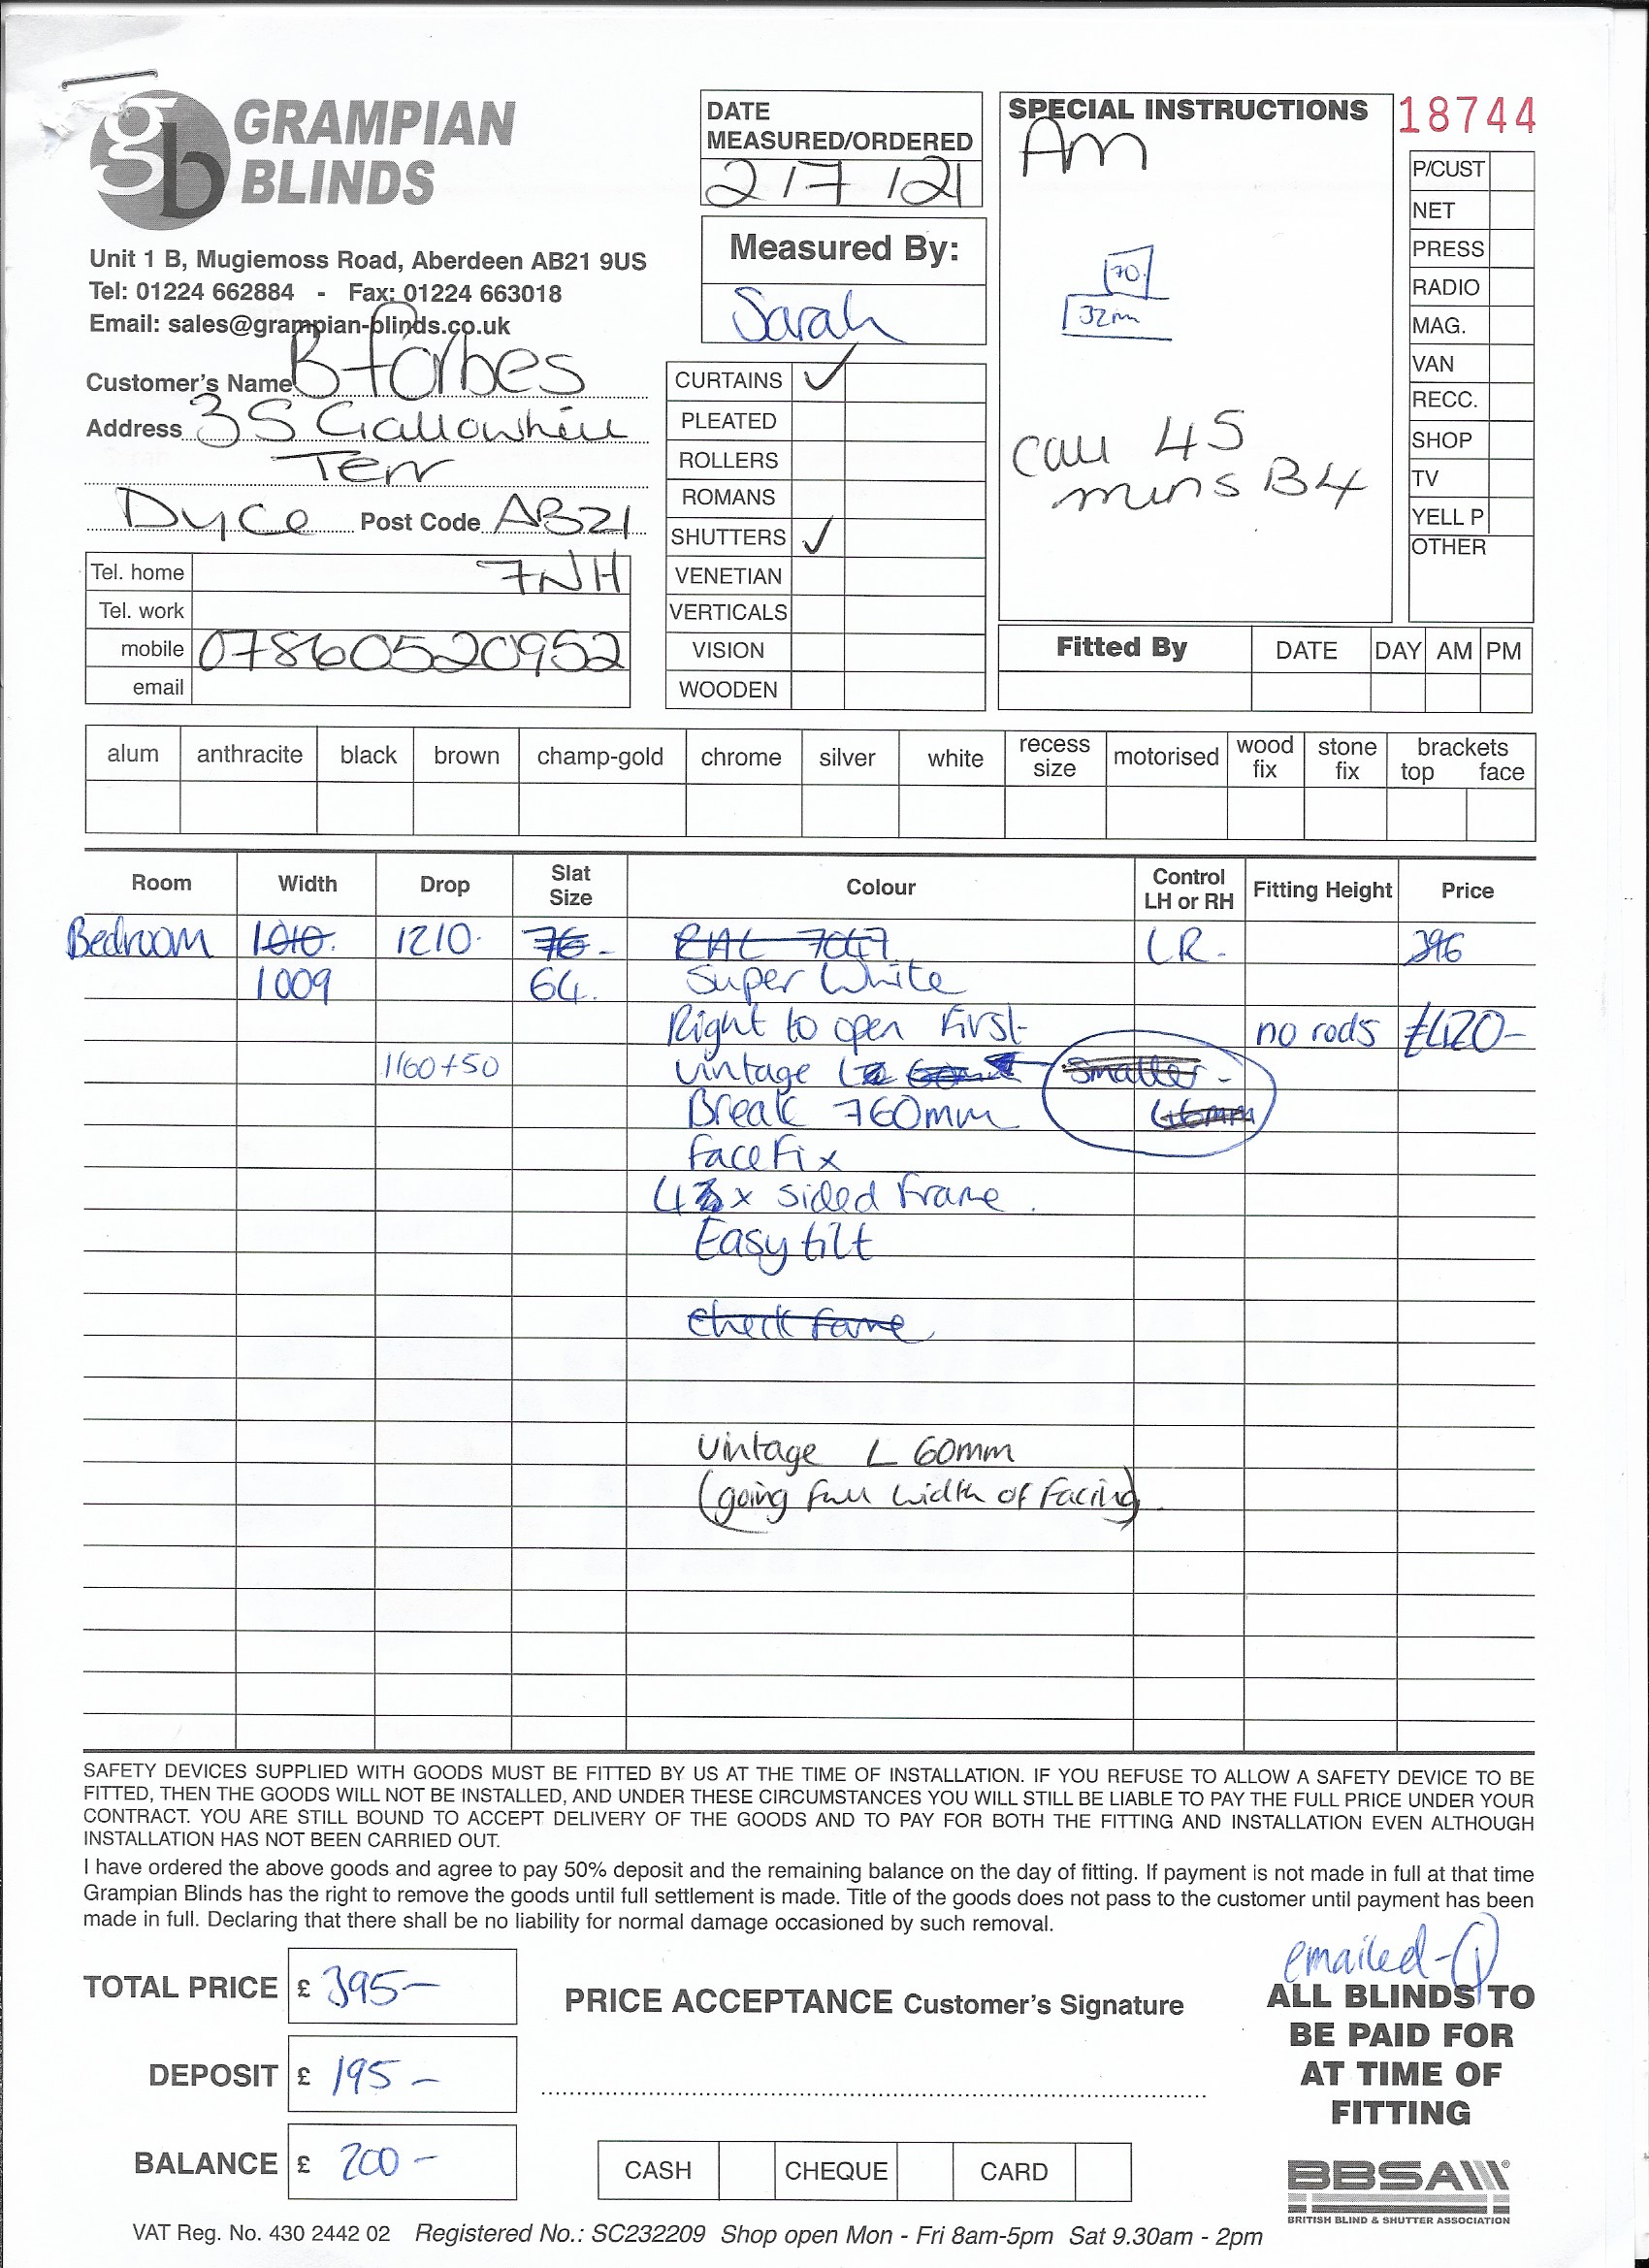 GRAMPIAN
BLINDS
gb
Unit 1 B, Mugiemoss Road, Aberdeen AB21 9US
Tel: 01224 662884 - Fax: 01224 663018
Email: sales@grampian-blinds.co.uk
Customer's Name B Forbes
Address 35 Gallowhill
Terr
Dyce Post Code AB21
7NH
Tel. home
Tel. work
mobile 07860520952
email
DATE
MEASURED/ORDERED
2/7/21
Measured By:
Sarah
CURTAINS ✓
PLEATED
ROLLERS
ROMANS
SHUTTERS ✓
VENETIAN
VERTICALS
VISION
WOODEN
SPECIAL INSTRUCTIONS
AM
70
32mm
call 45
mins B4
18744
P/CUST
NET
PRESS
RADIO
MAG.
VAN
RECC.
SHOP
TV
YELL P
OTHER
Fitted By DATE DAY AM PM
alum anthracite black brown champ-gold chrome silver white recess size motorised wood fix stone fix brackets top face
Room Width Drop Slat Size Colour Control LH or RH Fitting Height Price
Bedroom 1010. 1210. 76 - RAL 7047 LR. 396
1009 64. Super White
Right to open First no rods £420-
1160+50 vintage L Smaller -
Break 760mm 46mm
Face Fix
4 x sided Frame.
Easy tilt
Check Fame
Vintage L 60mm
(going full width of Facing).
SAFETY DEVICES SUPPLIED WITH GOODS MUST BE FITTED BY US AT THE TIME OF INSTALLATION. IF YOU REFUSE TO ALLOW A SAFETY DEVICE TO BE
FITTED, THEN THE GOODS WILL NOT BE INSTALLED, AND UNDER THESE CIRCUMSTANCES YOU WILL STILL BE LIABLE TO PAY THE FULL PRICE UNDER YOUR
CONTRACT. YOU ARE STILL BOUND TO ACCEPT DELIVERY OF THE GOODS AND TO PAY FOR BOTH THE FITTING AND INSTALLATION EVEN ALTHOUGH
INSTALLATION HAS NOT BEEN CARRIED OUT.
I have ordered the above goods and agree to pay 50% deposit and the remaining balance on the day of fitting. If payment is not made in full at that time
Grampian Blinds has the right to remove the goods until full settlement is made. Title of the goods does not pass to the customer until payment has been
made in full. Declaring that there shall be no liability for normal damage occasioned by such removal.
TOTAL PRICE £ 395-
DEPOSIT £ 195-
BALANCE £ 200-
PRICE ACCEPTANCE Customer's Signature
CASH CHEQUE CARD
emailed-
ALL BLINDS TO
BE PAID FOR
AT TIME OF
FITTING
BBSA
BRITISH BLIND & SHUTTER ASSOCIATION
VAT Reg. No. 430 2442 02 Registered No.: SC232209 Shop open Mon - Fri 8am-5pm Sat 9.30am - 2pm